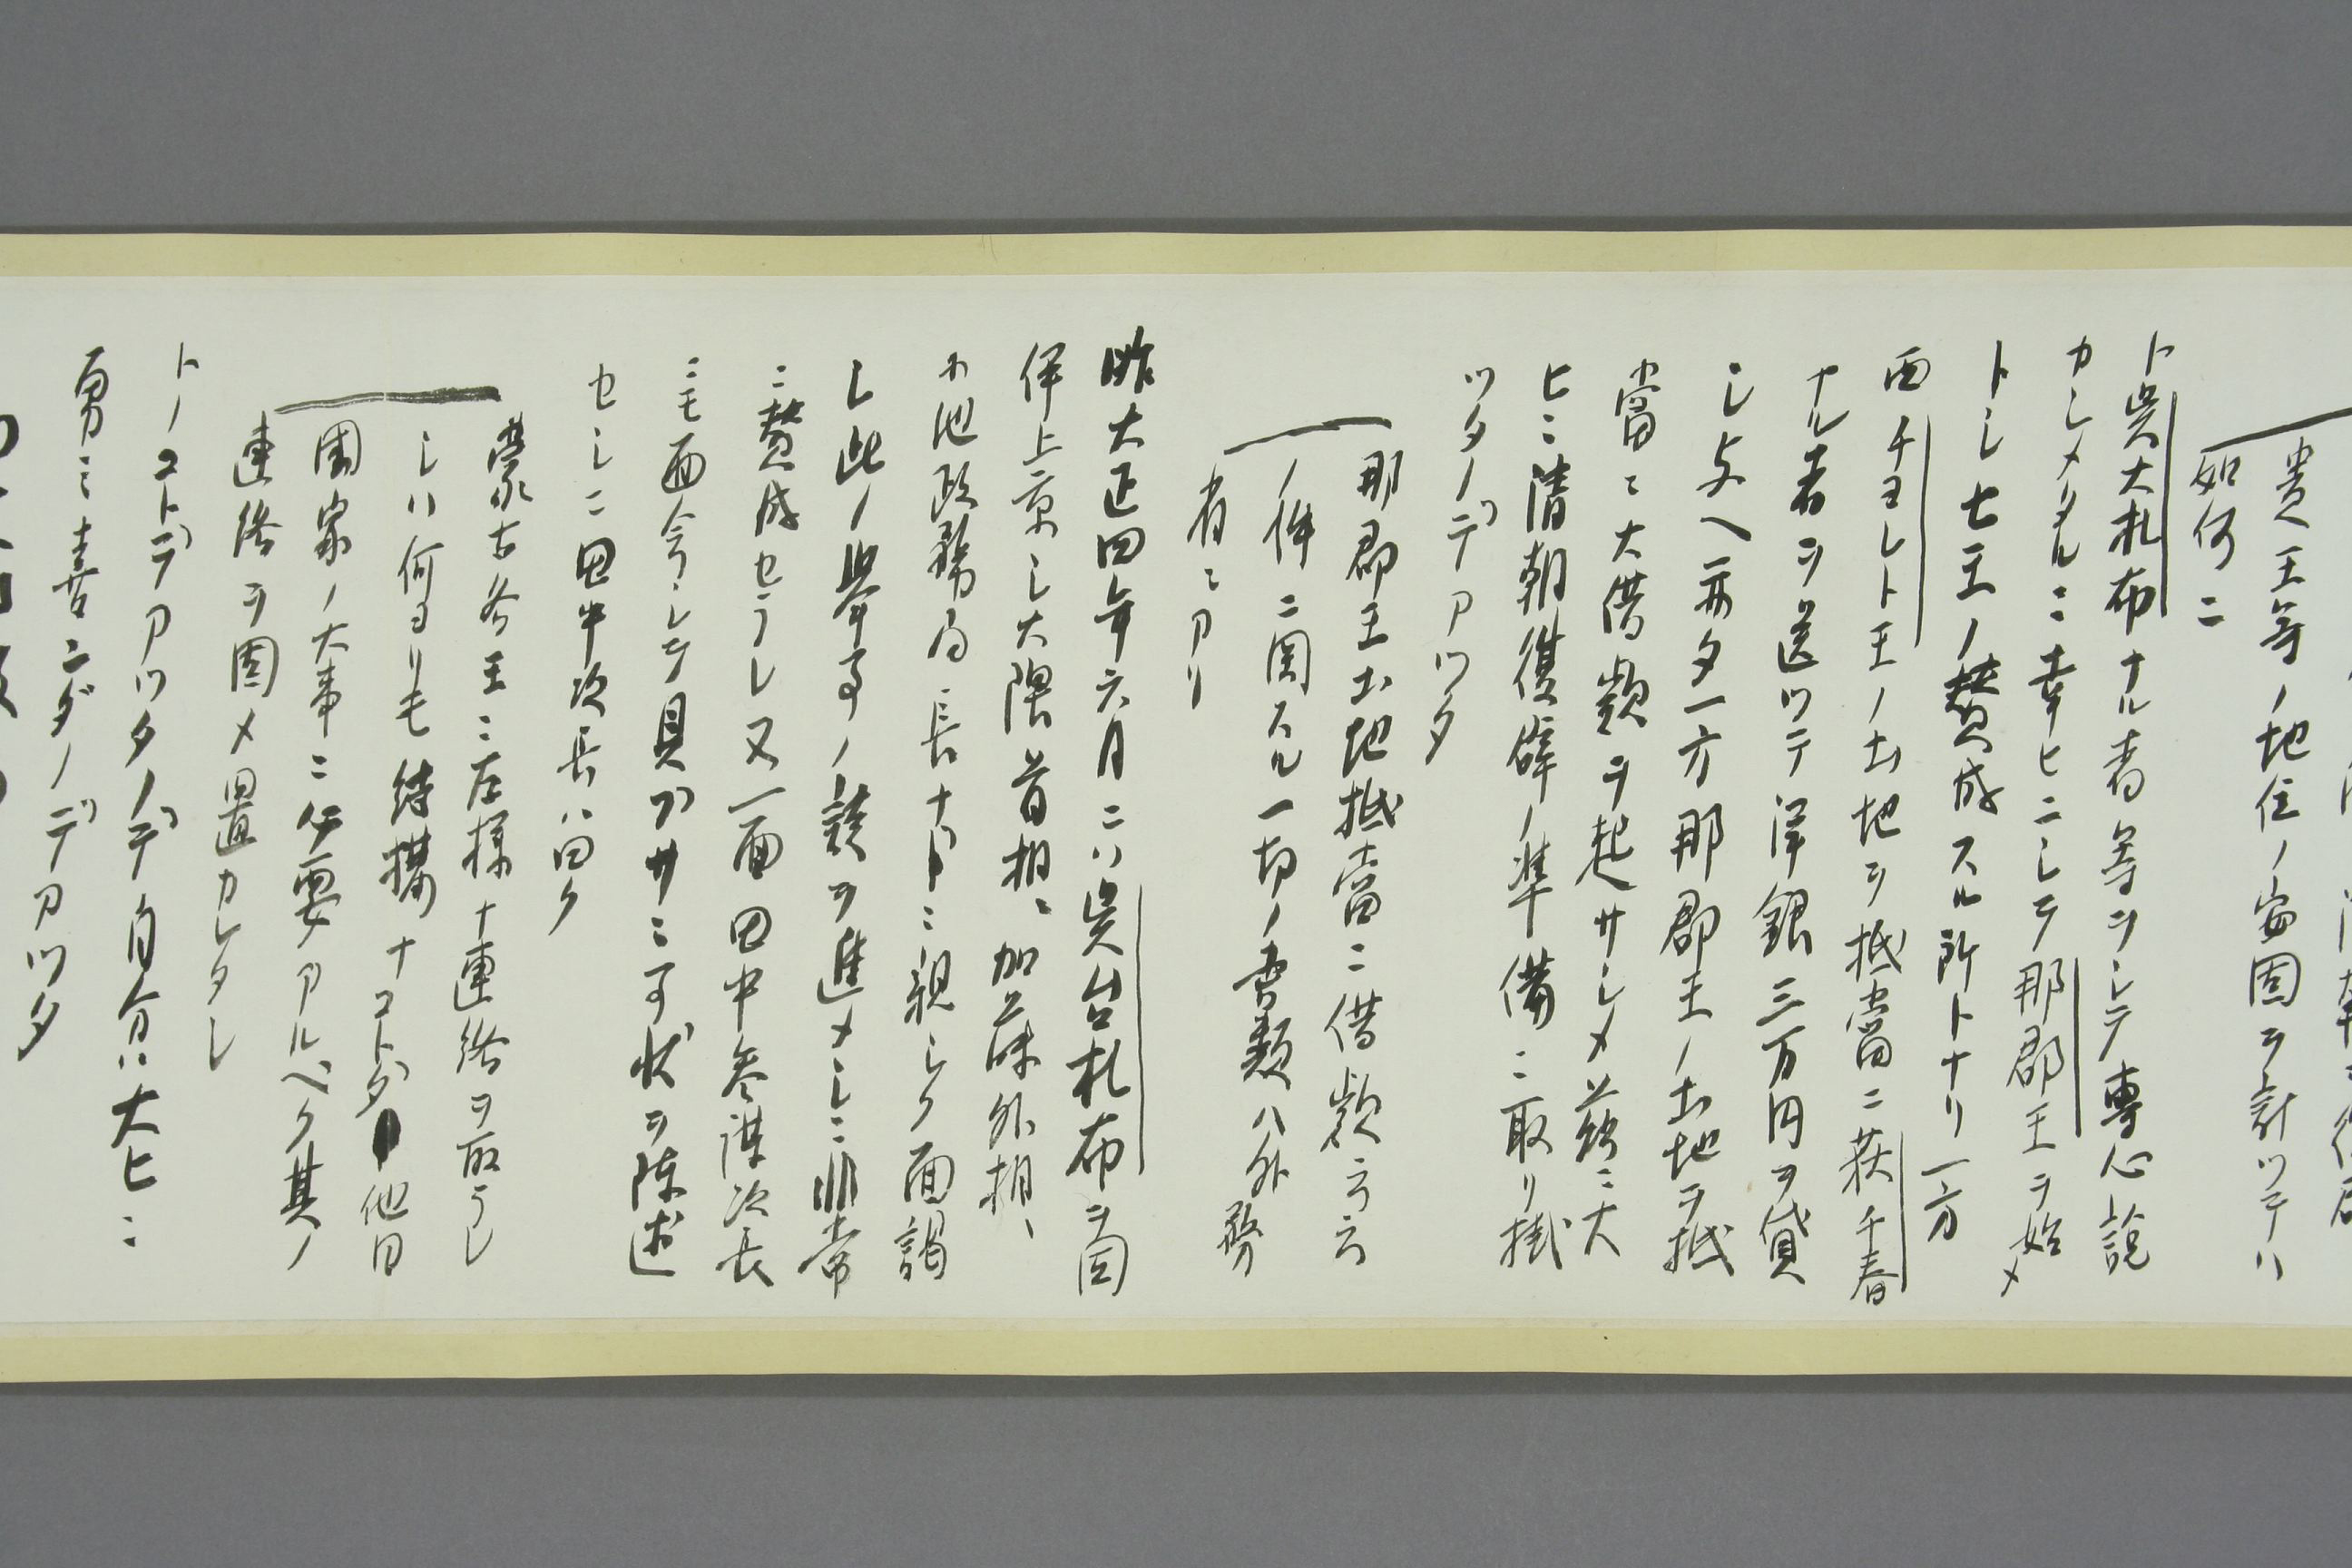 貴王等ノ地位ノ安固ヲ計ツテハ
如何ニ
ト呉大札布ナル者等ヲシテ専心説
カシメタルニ幸ヒニシテ那郡王ヲ始メ
トシ七王ノ賛成スル所トナリ一方
面チヨレト王ノ土地ヲ抵當ニ荻千春
ナル者ヲ送ツテ洋銀三万円ヲ貸
シ与ヘ亦タ一方那郡王ノ土地ヲ抵
當ニ大借欵ヲ起サシメ茲ニ大
ヒニ清朝復辟ノ準備ニ取リ掛
ツタノデアツタ
那郡王土地抵當ニ借欵云云
ノ件ニ関スル一切ノ書類ハ外務
省ニアリ
昨大正四年六月ニハ呉台札布ヲ同
伴上京シ大隈首相、加藤外相、
小池政務局長ナドニ親シク面謁
シ此ノ挙事ノ談ヲ進メシニ非常
ニ賛成セラレ又一面田中参謀次長
ニモ面会シテ具ツサニ事状ヲ陳述
セシニ田中次長ハ曰ク
蒙古各王ニ左様ナ連絡ヲ取ラレ
シハ何ヨリモ結構ナコトダ他日
国家ノ大事ニ必要アルベク其ノ
連絡ヲ固メ置カレタシ
トノコトデアツタノデ自分ハ大ヒニ
勇ミ喜ンダノデアツタ